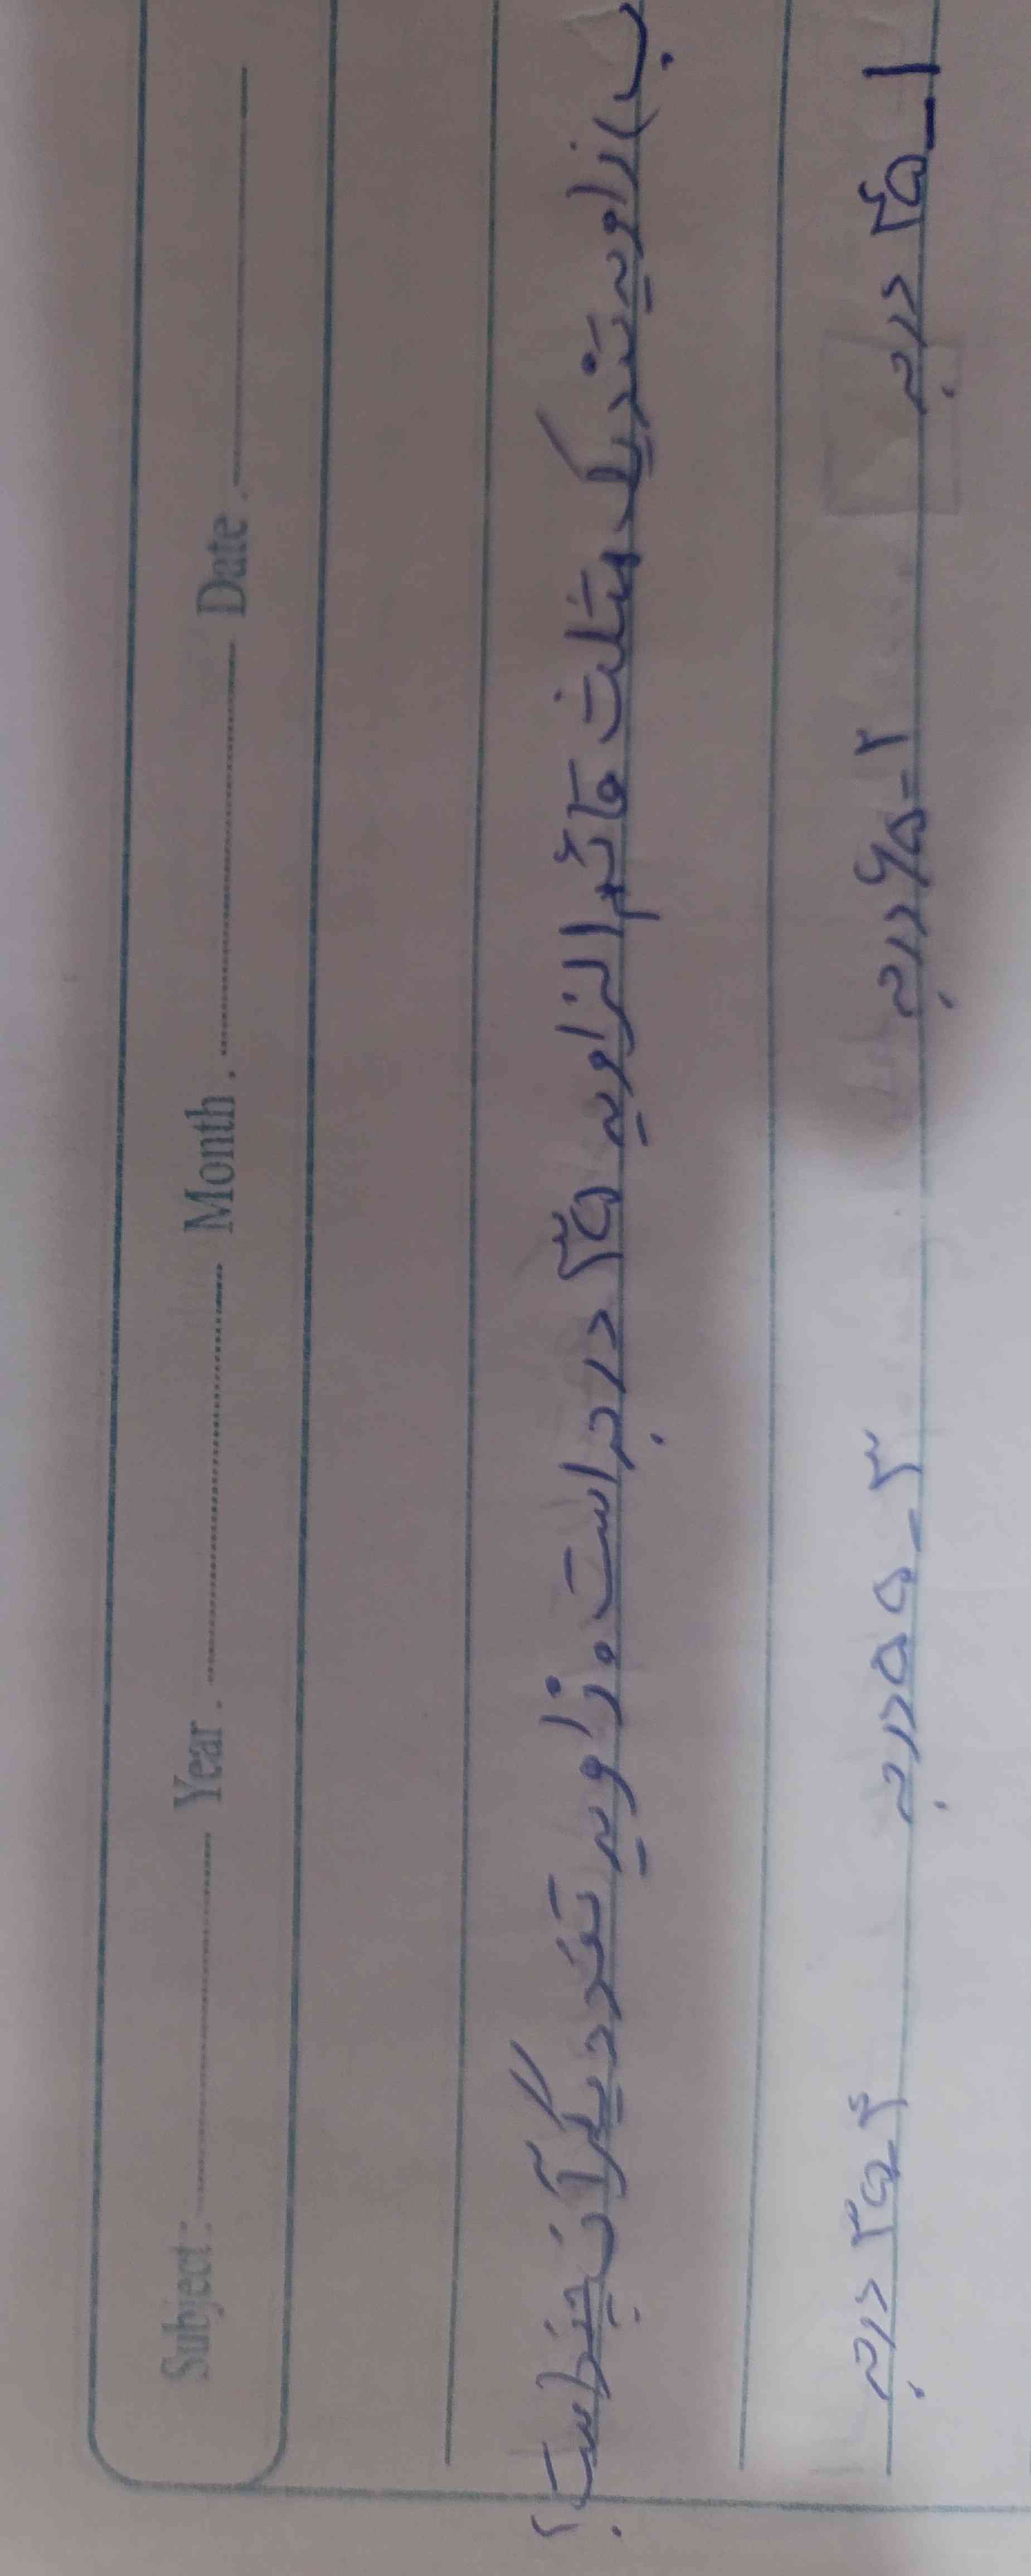 Subject: Year. Month. Date.
ب) زاویه تند یک مثلث قائم الزاویه ۳۵ درجه است. زاویه تند دیگر آن چند است؟
۱_ ۳۵ درجه ۲- ۶۵ درجه ۳- ۵۵ درجه ۴- ۴۵ درجه